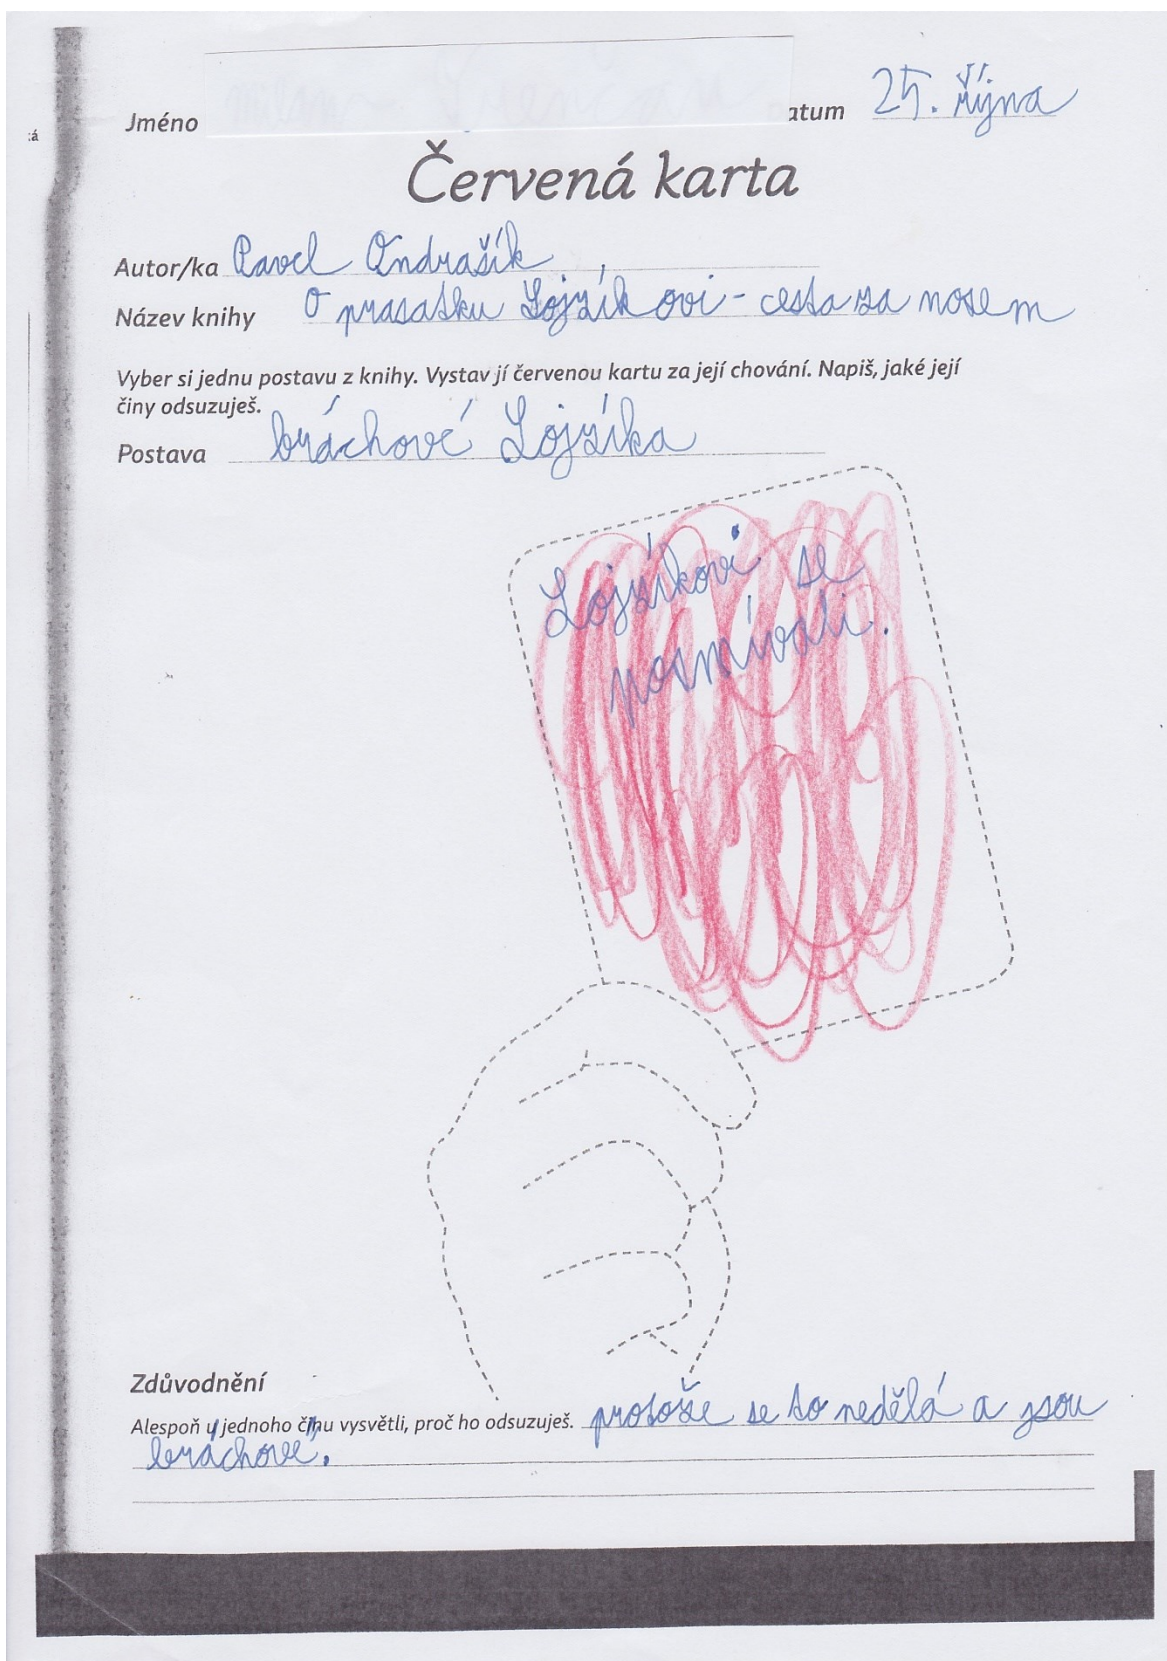 á
Jméno
atum 25. října
Červená karta
Autor/ka Pavel Ondrašík
Název knihy O prasatku Lojzíkovi - cesta za nosem
Vyber si jednu postavu z knihy. Vystav jí červenou kartu za její chování. Napiš, jaké její
činy odsuzuješ.
Postava bráchové Lojzíka
Lojzíkovi se
posmívali.
Zdůvodnění
Alespoň u jednoho činu vysvětli, proč ho odsuzuješ. protože se to nedělá a jsou
bráchové.